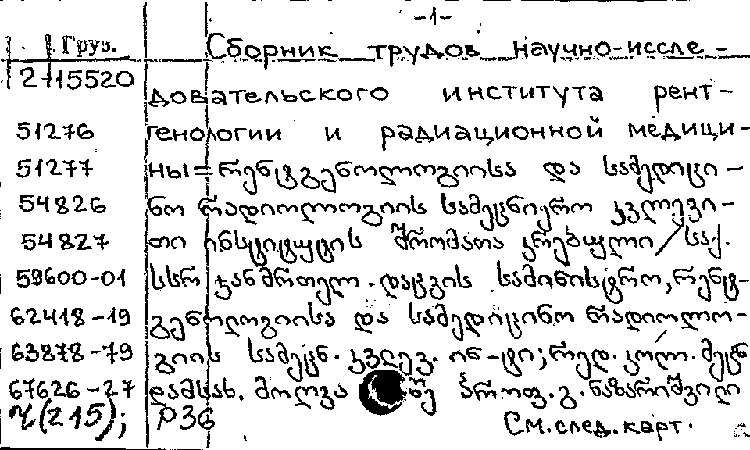 -1-
Груз. Сборник трудов научно-иссле-
2-15520 довательского института рент-
51276 генологии и радиационной медици-
51277 ны=რენტგენოლოგიისა და სამედიცი-
54826 ნო რადიოლოგიის სამეცნიერო კვლევი-
54827 თი ინსტიტუტის შრომათა კრებული/საქ.
59600-01 სსრ ჯანმრთელ. დაცვის სამინისტრო, რენტ-
62418-19 გენოლოგიისა და სამედიცინო რადიოლო-
63878-79 გიის სამეცნ. კვლევ. ინ-ტი; რედ. კოლ. მეცნ
67626-27 დამსახ. მოღვა პროფ. გ. ნაზარიშვილი
(215); P36 См. след. карт.